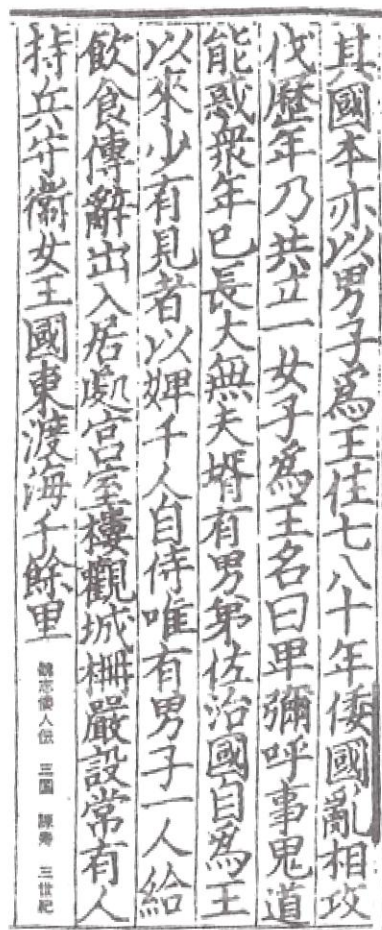 其國本亦以男子爲王住七八十年倭國亂相攻
伐歷年乃共立一女子爲王名曰卑彌呼事鬼道
能惑衆年已長大無夫壻有男弟佐治國自爲王
以來少有見者以婢千人自侍唯有男子一人給
飲食傳辭出入居處宮室樓觀城柵嚴設常有人
持兵守衞女王國東渡海千餘里
魏志倭人伝 三国 陳寿 三世紀